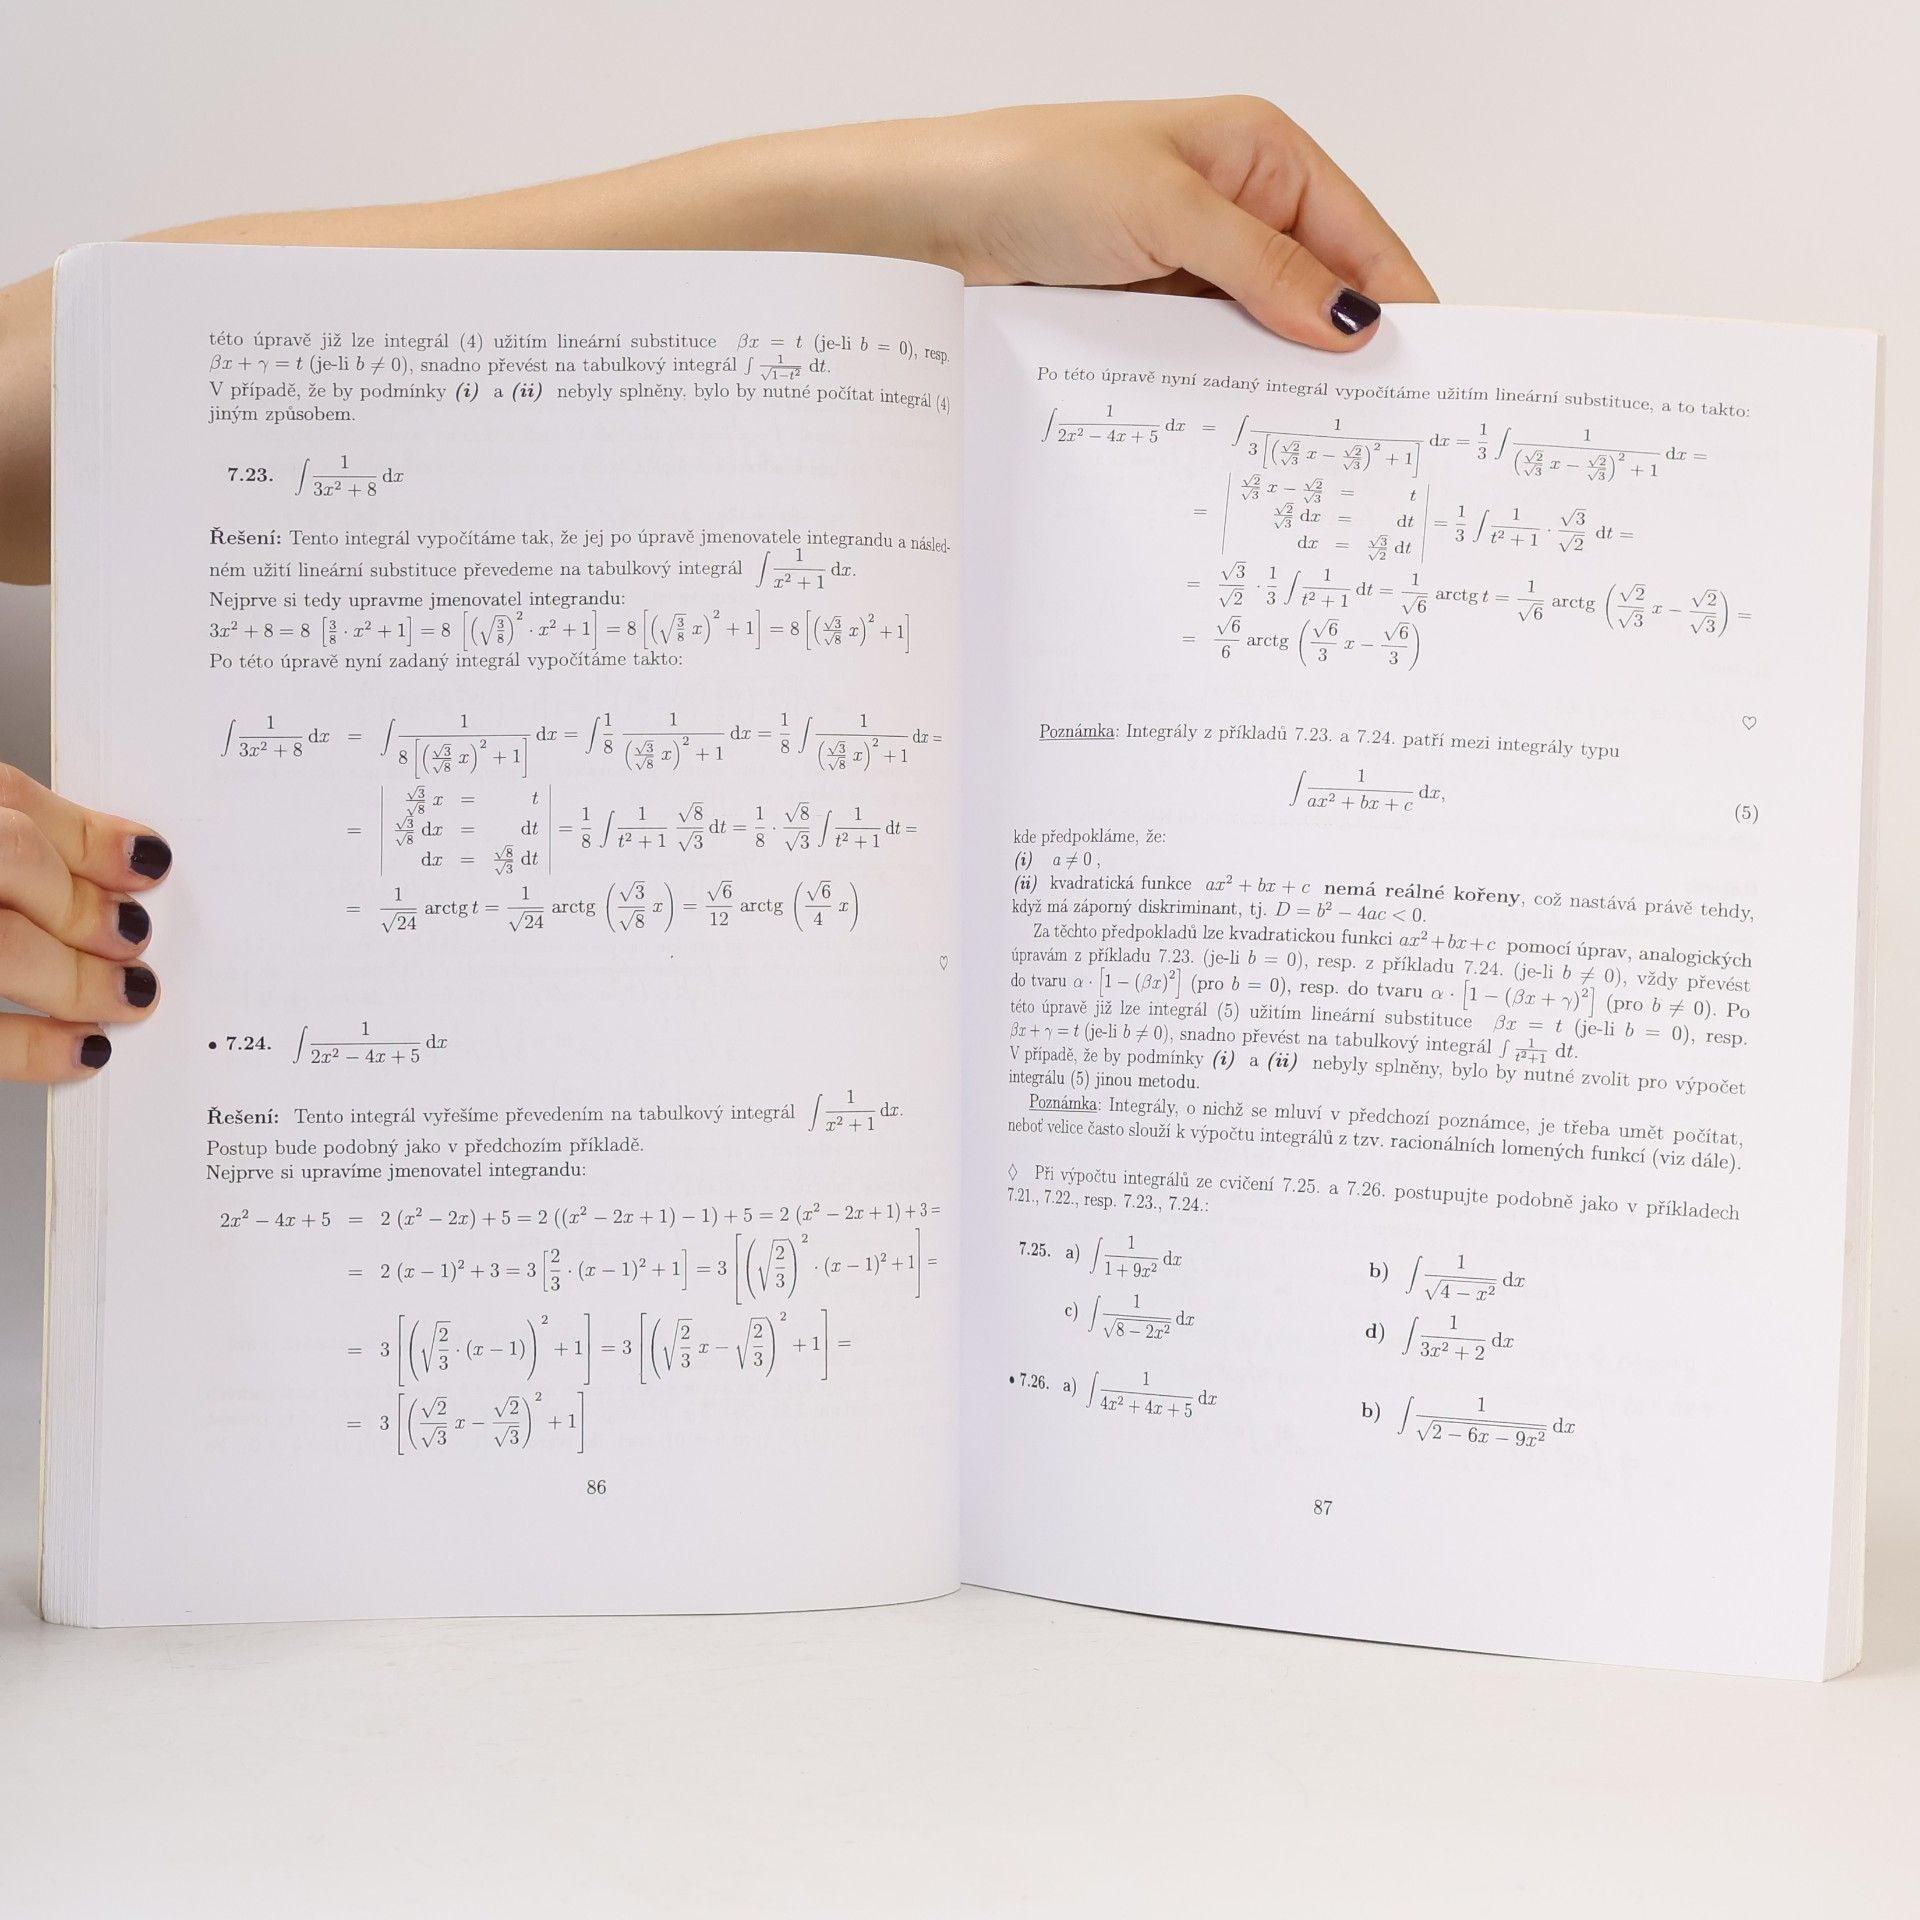 této úpravě již lze integrál (4) užitím lineární substituce βx = t (je-li b = 0), resp.
βx + γ = t (je-li b ≠ 0), snadno převést na tabulkový integrál ∫ 1/√(1−t²) dt.
V případě, že by podmínky (i) a (ii) nebyly splněny, bylo by nutné počítat integrál (4)
jiným způsobem.
7.23. ∫ 1/(3x² + 8) dx
Řešení: Tento integrál vypočítáme tak, že jej po úpravě jmenovatele integrandu a násled-
ném užití lineární substituce převedeme na tabulkový integrál ∫ 1/(x² + 1) dx.
Nejprve si tedy upravme jmenovatel integrandu:
3x² + 8 = 8 [3/8 · x² + 1] = 8 [(√(3/8))² · x² + 1] = 8 [(√(3/8) x)² + 1] = 8 [(√3/√8 x)² + 1]
Po této úpravě nyní zadaný integrál vypočítáme takto:
∫ 1/(3x² + 8) dx = ∫ 1/(8 [(√3/√8 x)² + 1]) dx = ∫ 1/8 1/((√3/√8 x)² + 1) dx = 1/8 ∫ 1/((√3/√8 x)² + 1) dx =
= | √3/√8 x = t
√3/√8 dx = dt
dx = √8/√3 dt | = 1/8 ∫ 1/(t² + 1) √8/√3 dt = 1/8 · √8/√3 ∫ 1/(t² + 1) dt =
= 1/√24 arctg t = 1/√24 arctg (√3/√8 x) = √6/12 arctg (√6/4 x)
♡
• 7.24. ∫ 1/(2x² − 4x + 5) dx
Řešení: Tento integrál vyřešíme převedením na tabulkový integrál ∫ 1/(x² + 1) dx.
Postup bude podobný jako v předchozím příkladě.
Nejprve si upravíme jmenovatel integrandu:
2x² − 4x + 5 = 2 (x² − 2x) + 5 = 2 ((x² − 2x + 1) − 1) + 5 = 2 (x² − 2x + 1) + 3 =
= 2 (x − 1)² + 3 = 3 [2/3 · (x − 1)² + 1] = 3 [(√(2/3))² · (x − 1)² + 1] =
= 3 [(√(2/3) · (x − 1))² + 1] = 3 [(√(2/3) x − √(2/3))² + 1] =
= 3 [(√2/√3 x − √2/√3)² + 1]
86
Po této úpravě nyní zadaný integrál vypočítáme užitím lineární substituce, a to takto:
∫ 1/(2x² − 4x + 5) dx = ∫ 1/(3 [(√2/√3 x − √2/√3)² + 1]) dx = 1/3 ∫ 1/((√2/√3 x − √2/√3)² + 1) dx =
= | √2/√3 x − √2/√3 = t
√2/√3 dx = dt
dx = √3/√2 dt | = 1/3 ∫ 1/(t² + 1) · √3/√2 dt =
= √3/√2 · 1/3 ∫ 1/(t² + 1) dt = 1/√6 arctg t = 1/√6 arctg (√2/√3 x − √2/√3) =
= √6/6 arctg (√6/3 x − √6/3)
♡
Poznámka: Integrály z příkladů 7.23. a 7.24. patří mezi integrály typu
∫ 1/(ax² + bx + c) dx, (5)
kde předpokláme, že:
(i) a ≠ 0 ,
(ii) kvadratická funkce ax² + bx + c nemá reálné kořeny, což nastává právě tehdy,
když má záporný diskriminant, tj. D = b² − 4ac < 0.
Za těchto předpokladů lze kvadratickou funkci ax² + bx + c pomocí úprav, analogických
úpravám z příkladu 7.23. (je-li b = 0), resp. z příkladu 7.24. (je-li b ≠ 0), vždy převést
do tvaru α · [1 − (βx)²] (pro b = 0), resp. do tvaru α · [1 − (βx + γ)²] (pro b ≠ 0). Po
této úpravě již lze integrál (5) užitím lineární substituce βx = t (je-li b = 0), resp.
βx + γ = t (je-li b ≠ 0), snadno převést na tabulkový integrál ∫ 1/(t²+1) dt.
V případě, že by podmínky (i) a (ii) nebyly splněny, bylo by nutné zvolit pro výpočet
integrálu (5) jinou metodu.
Poznámka: Integrály, o nichž se mluví v předchozí poznámce, je třeba umět počítat,
neboť velice často slouží k výpočtu integrálů z tzv. racionálních lomených funkcí (viz dále).
◊ Při výpočtu integrálů ze cvičení 7.25. a 7.26. postupujte podobně jako v příkladech
7.21., 7.22., resp. 7.23., 7.24.:
7.25. a) ∫ 1/(1 + 9x²) dx b) ∫ 1/√(4 − x²) dx
c) ∫ 1/√(8 − 2x²) dx d) ∫ 1/(3x² + 2) dx
• 7.26. a) ∫ 1/(4x² + 4x + 5) dx b) ∫ 1/√(2 − 6x − 9x²) dx
87